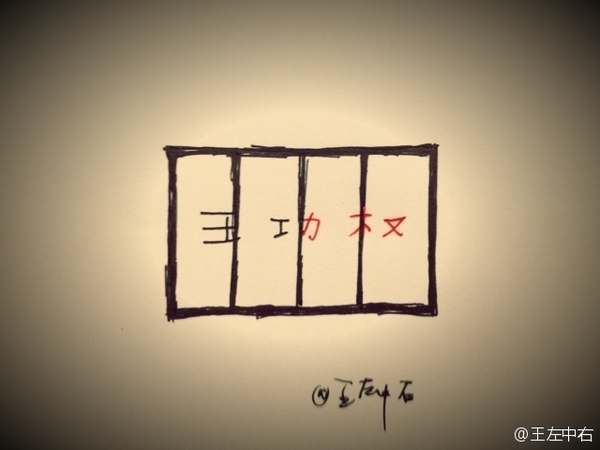 王功权
@王左中右
@王左中右